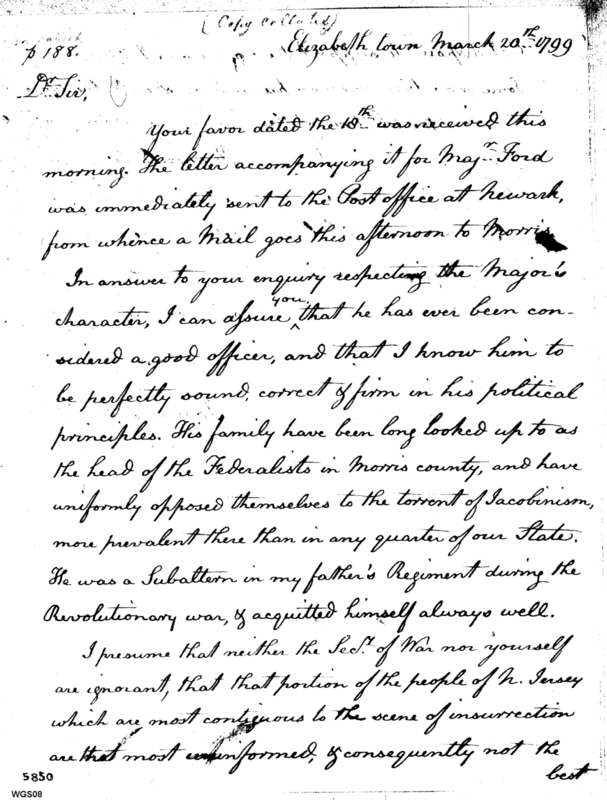 (Copy collated)
p 188.
Elizabeth town March 20th 1799
Dr Sir,
Your favor dated the 18th was received this
morning. The letter accompanying it for Majr Ford
was immediately sent to the Post office at Newark,
from whence a Mail goes this afternoon to Morris
In answer to your enquiry respecting the Major's
character, I can assure you, that he has ever been con-
sidered a good officer, and that I know him to
be perfectly sound, correct & firm in his political
principles. His family have been long looked up to as
the head of the Federalists in Morris county, and have
uniformly opposed themselves to the torrent of Jacobinism,
more prevalent there than in any quarter of our State.
He was a Subaltern in my father's Regiment during the
Revolutionary war, & acquitted himself always well.
I presume that neither the Secy of War nor yourself
are ignorant, that that portion of the people of N. Jersey
which are most contiguous to the scene of insurrection
are that most uninformed, & consequently not the
best
5850
WGS08